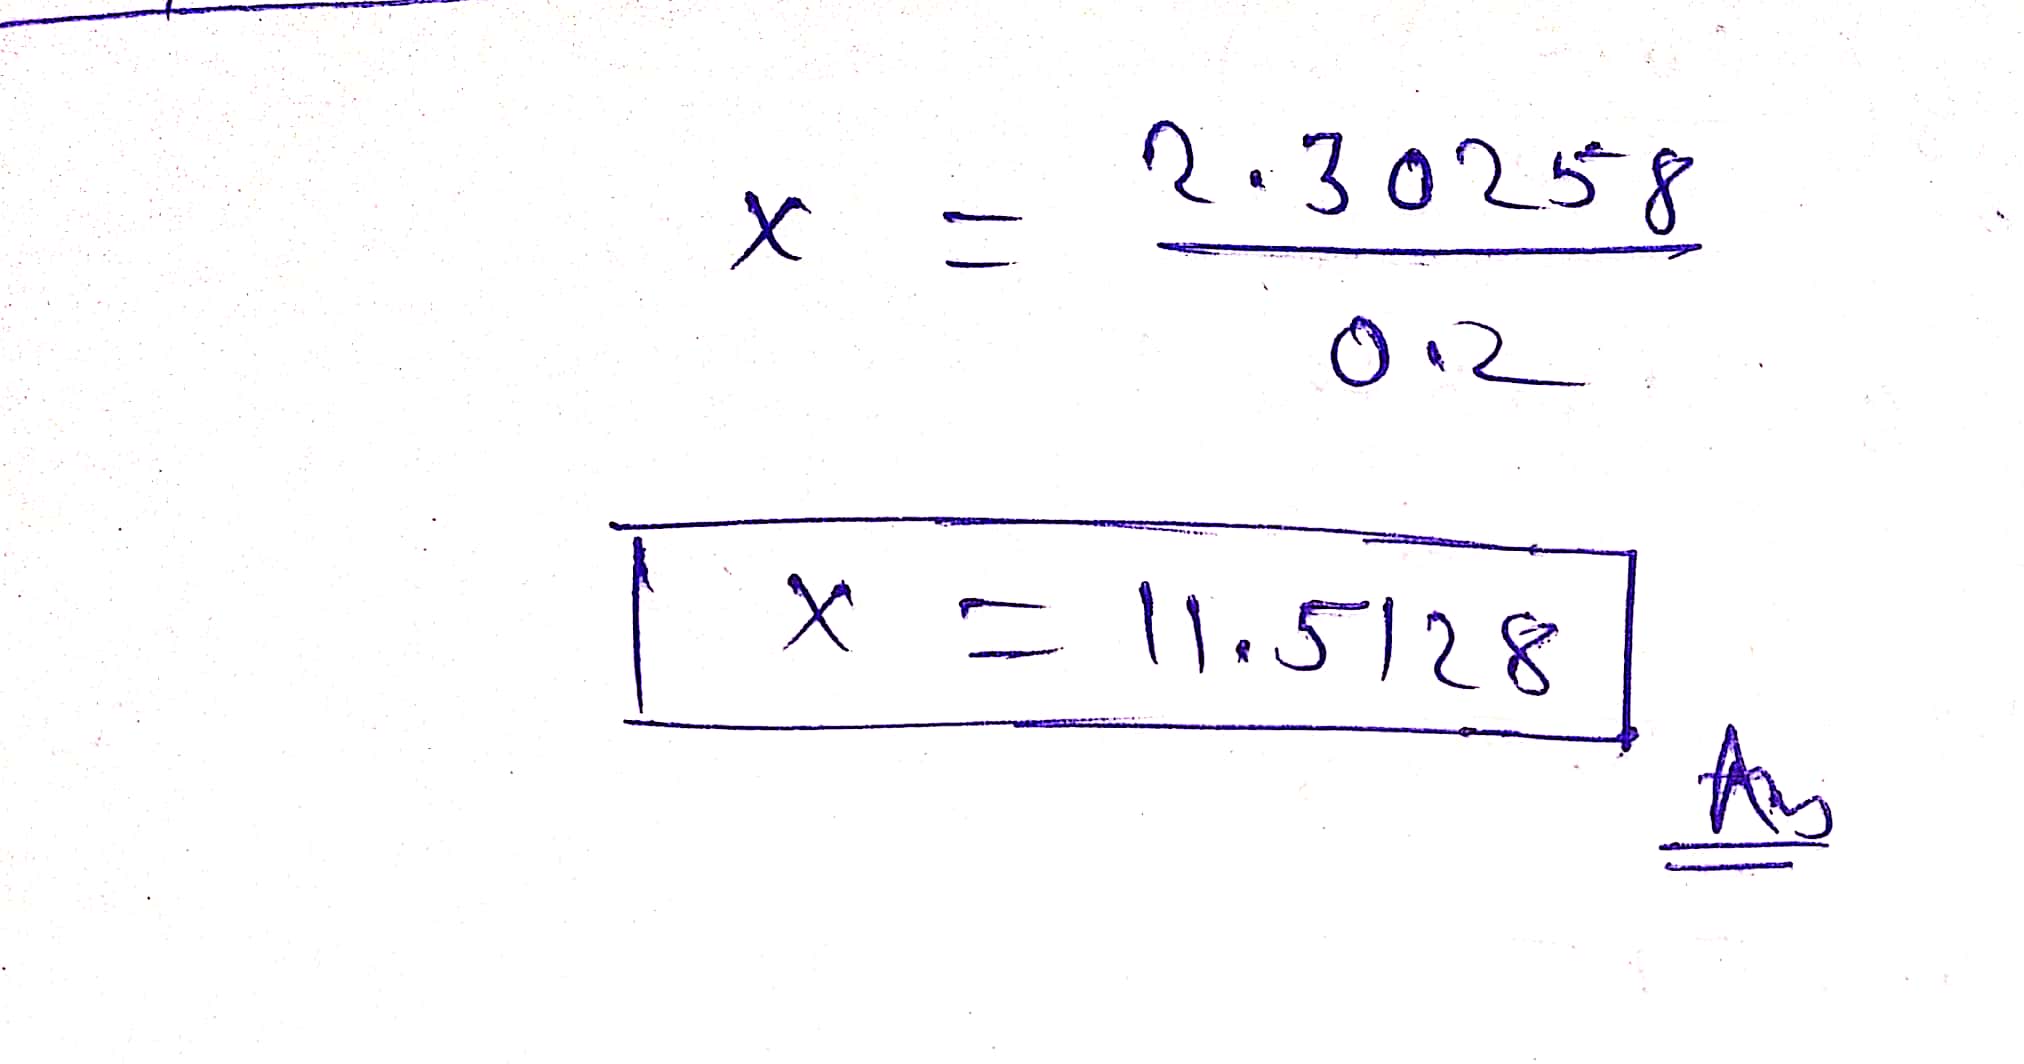 x = 2.30258
0.2
x = 11.5128
Ans